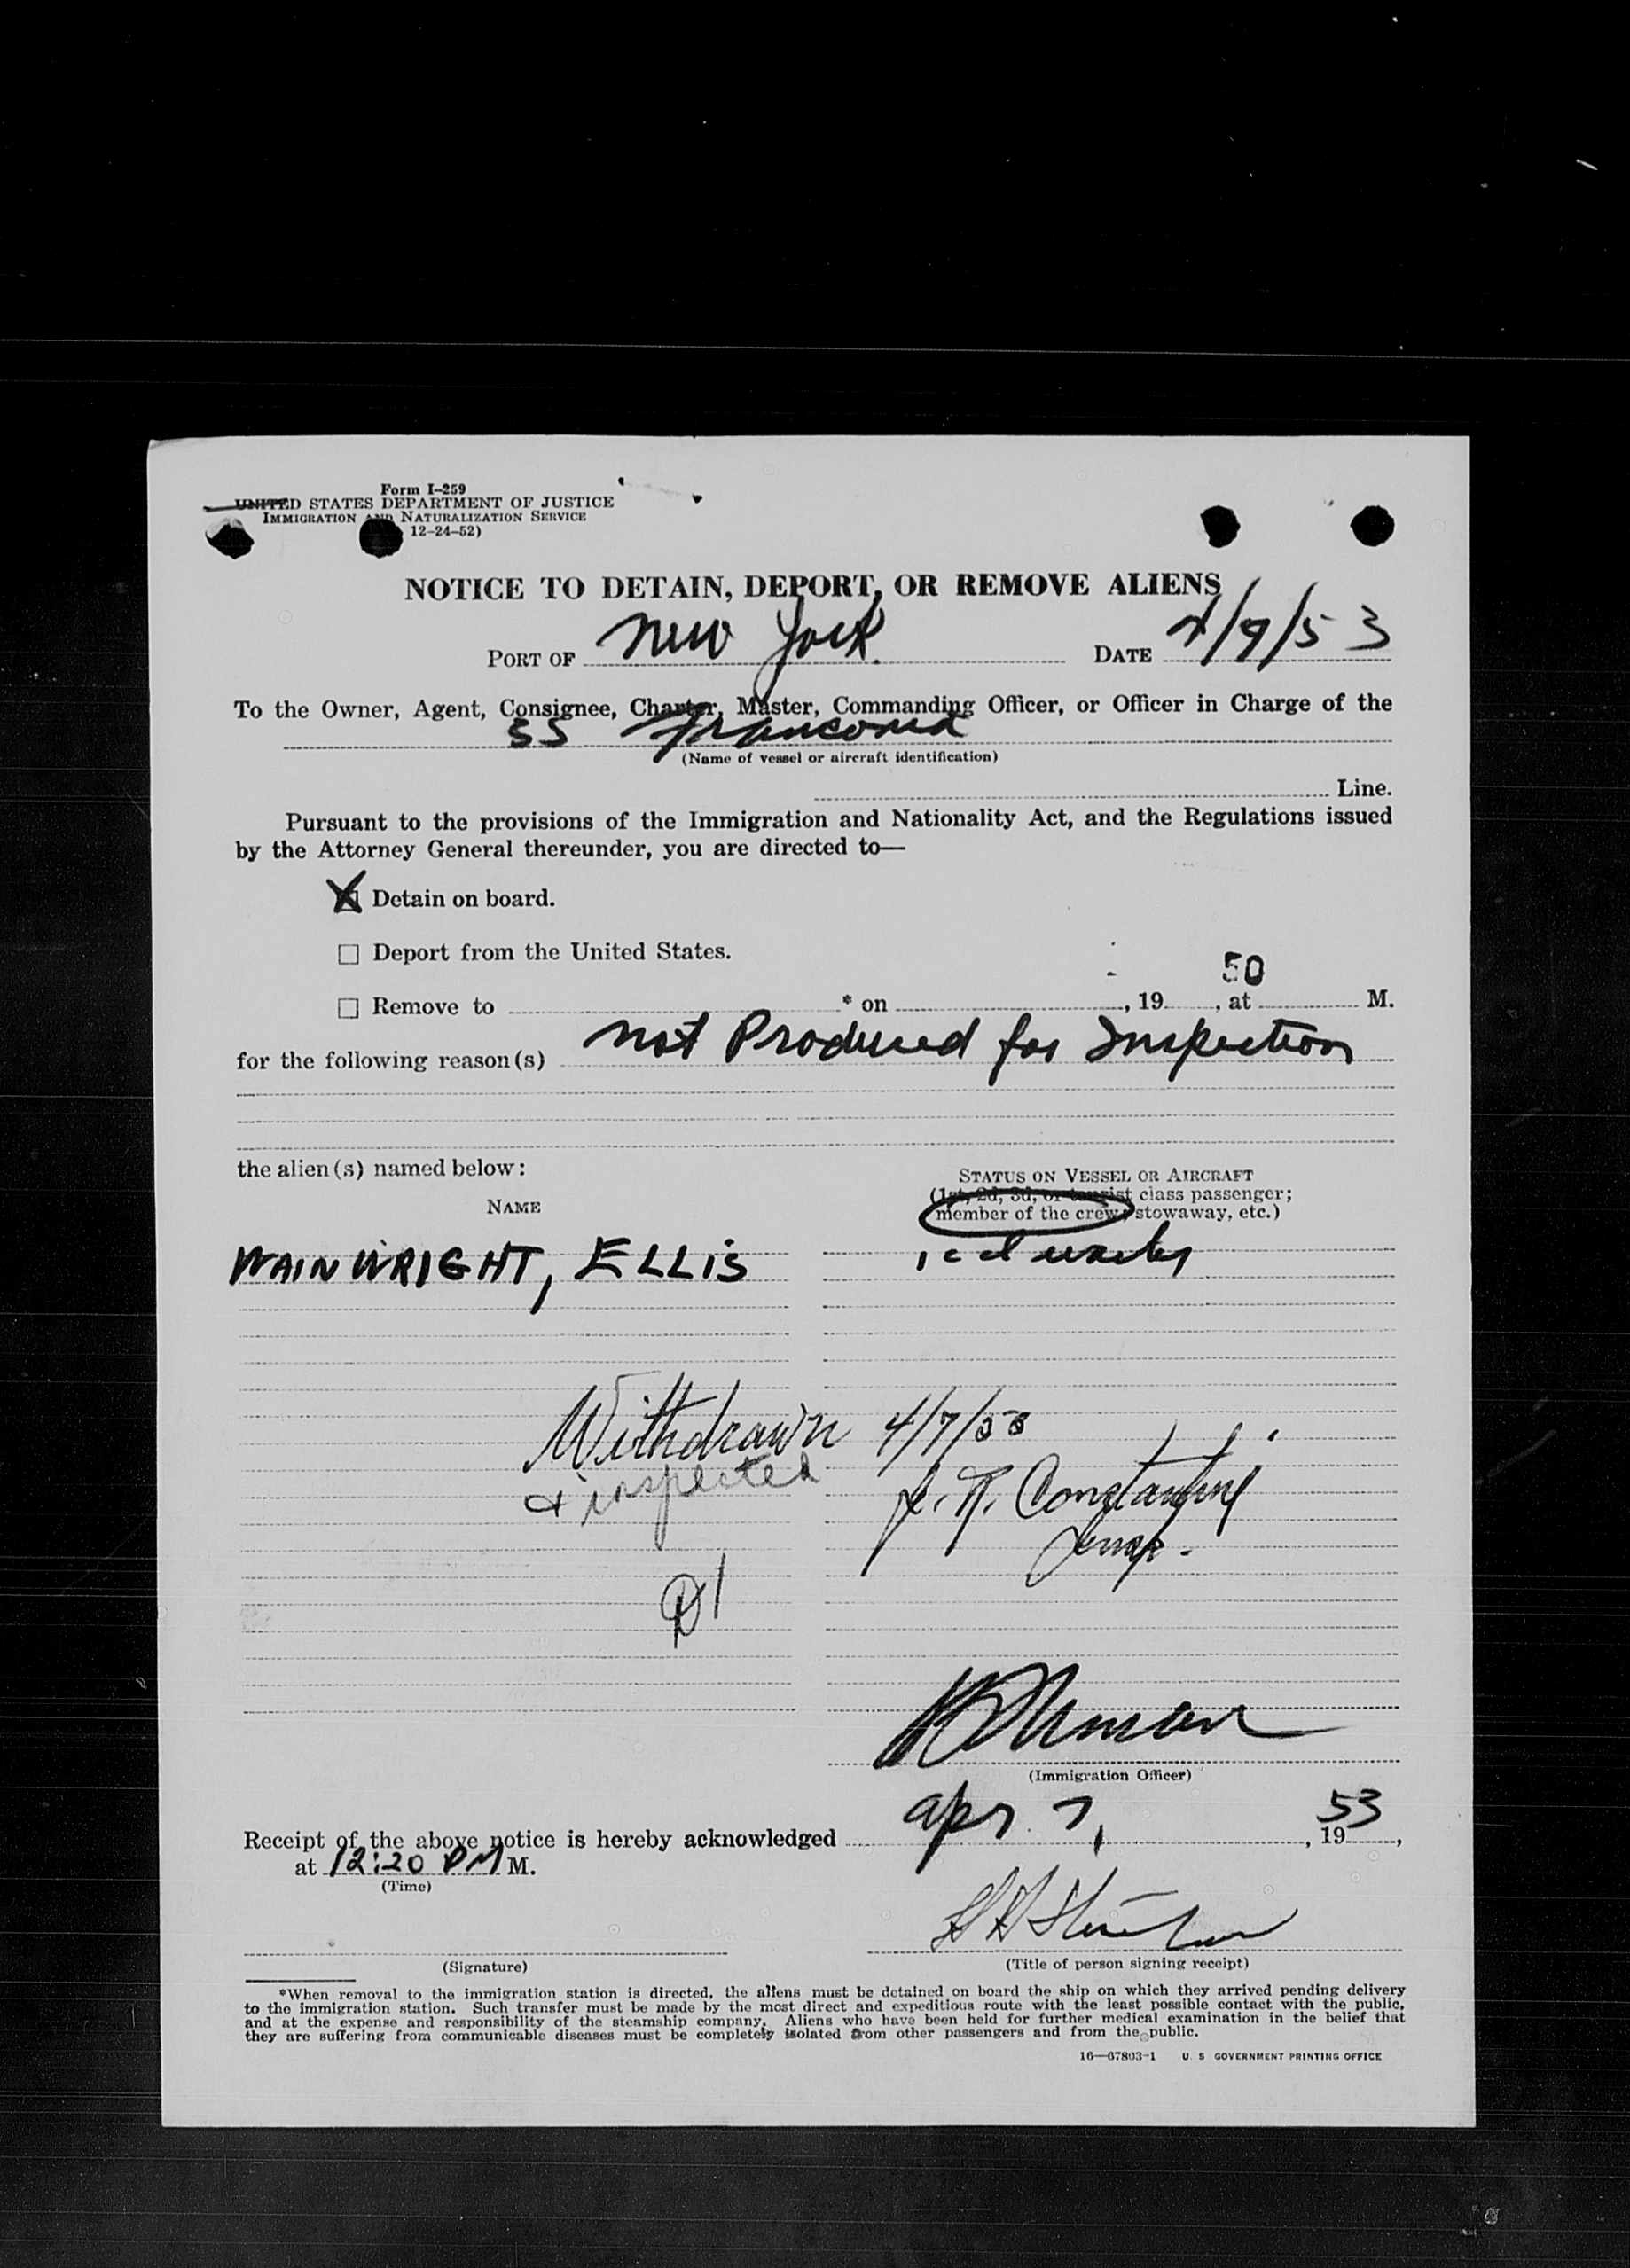 Form I-259
UNITED STATES DEPARTMENT OF JUSTICE
IMMIGRATION AND NATURALIZATION SERVICE
12-24-52)
NOTICE TO DETAIN, DEPORT, OR REMOVE ALIENS
PORT OF New York DATE 4/7/53
To the Owner, Agent, Consignee, Charter, Master, Commanding Officer, or Officer in Charge of the
SS Franconia
(Name of vessel or aircraft identification)
Line.
Pursuant to the provisions of the Immigration and Nationality Act, and the Regulations issued
by the Attorney General thereunder, you are directed to—
X Detain on board.
☐ Deport from the United States.
50
☐ Remove to * on , 19 , at M.
for the following reason(s) not Produced for Inspection
the alien(s) named below:
STATUS ON VESSEL OR AIRCRAFT
(1st, 2d, 3d, or tourist class passenger;
NAME
member of the crew, stowaway, etc.)
WAINWRIGHT, ELLIS
Withdrawn 4/7/53
& inspected
Constantine
(Immigration Officer)
Receipt of the above notice is hereby acknowledged Apr. 7, 1953,
at 12:20 PM M.
(Time)
(Signature) (Title of person signing receipt)
*When removal to the immigration station is directed, the aliens must be detained on board the ship on which they arrived pending delivery
to the immigration station. Such transfer must be made by the most direct and expeditious route with the least possible contact with the public,
and at the expense and responsibility of the steamship company. Aliens who have been held for further medical examination in the belief that
they are suffering from communicable diseases must be completely isolated from other passengers and from the public.
16—67803-1 U. S. GOVERNMENT PRINTING OFFICE